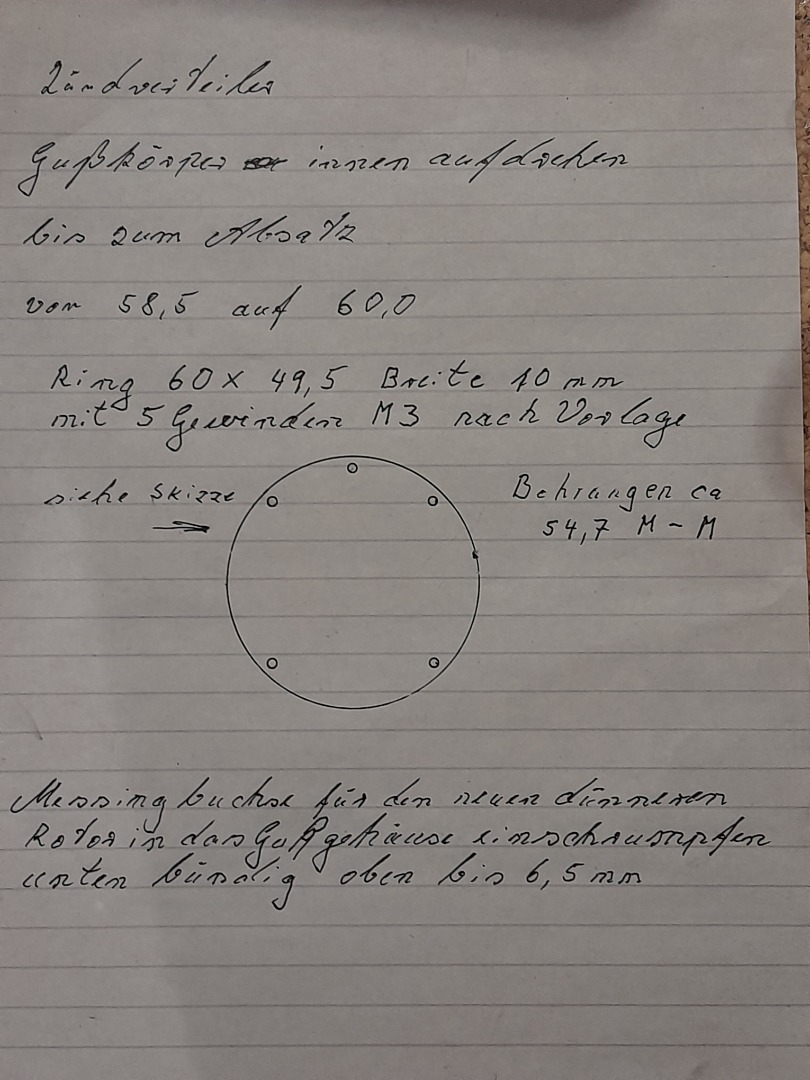 Zündverteiler
Gußkörper innen aufdrehen
bis zum Absatz
von 58,5 auf 60,0
Ring 60 x 49,5 Breite 10 mm
mit 5 Gewinden M3 nach Vorlage
siehe Skizze
Bohrungen ca
54,7 M - M
Messingbuchse für den neuen dünneren
Rotor in das Gußgehäuse einschrumpfen
unten bündig oben bis 6,5 mm